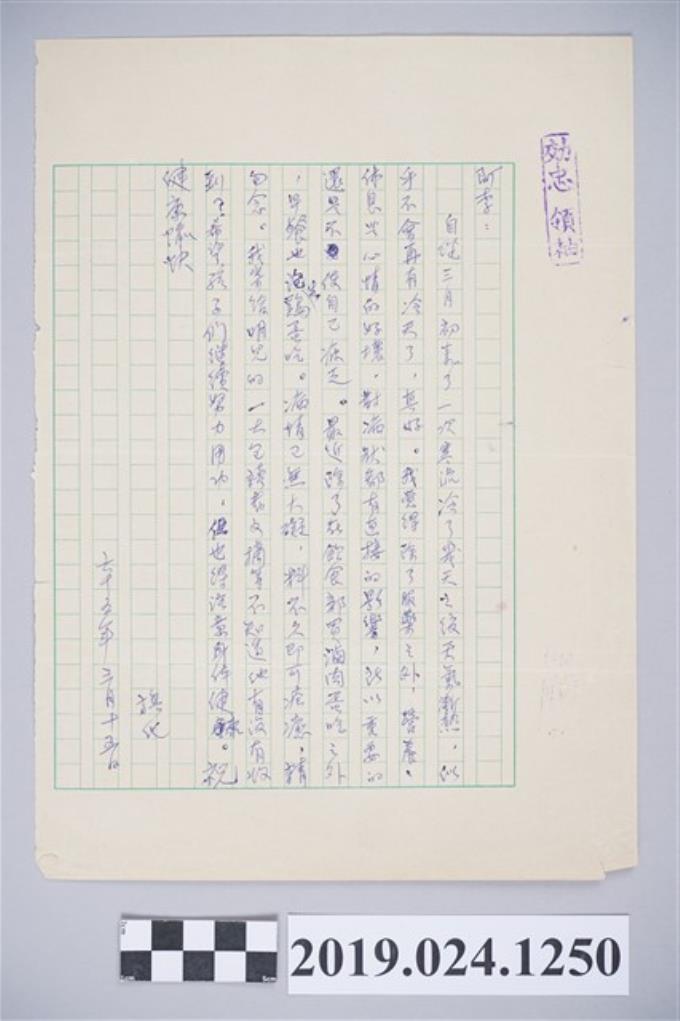 効忠領袖
阿李：
自從三月初來了一次寒流冷了幾天之後天氣漸熱，似
乎不會再有冷天了，真好。我覺得除了服藥之外，營養、
休息與心情的好壞，對病狀都有直接的影響，所以重要的
還是不使自己疲乏。最近除了在飲食部買滷肉蛋吃之外
，早餐也泡鷄蛋吃。病情已無大礙，料不久即可痊癒，請
勿念。我寄給明兒的一大包讀者文摘等不知道他有沒有收
到？希望孩子們繼續努力用功，但也得注意身体健康。祝
健康愉快
旗化
六十五年三月十五日
2019.024.1250